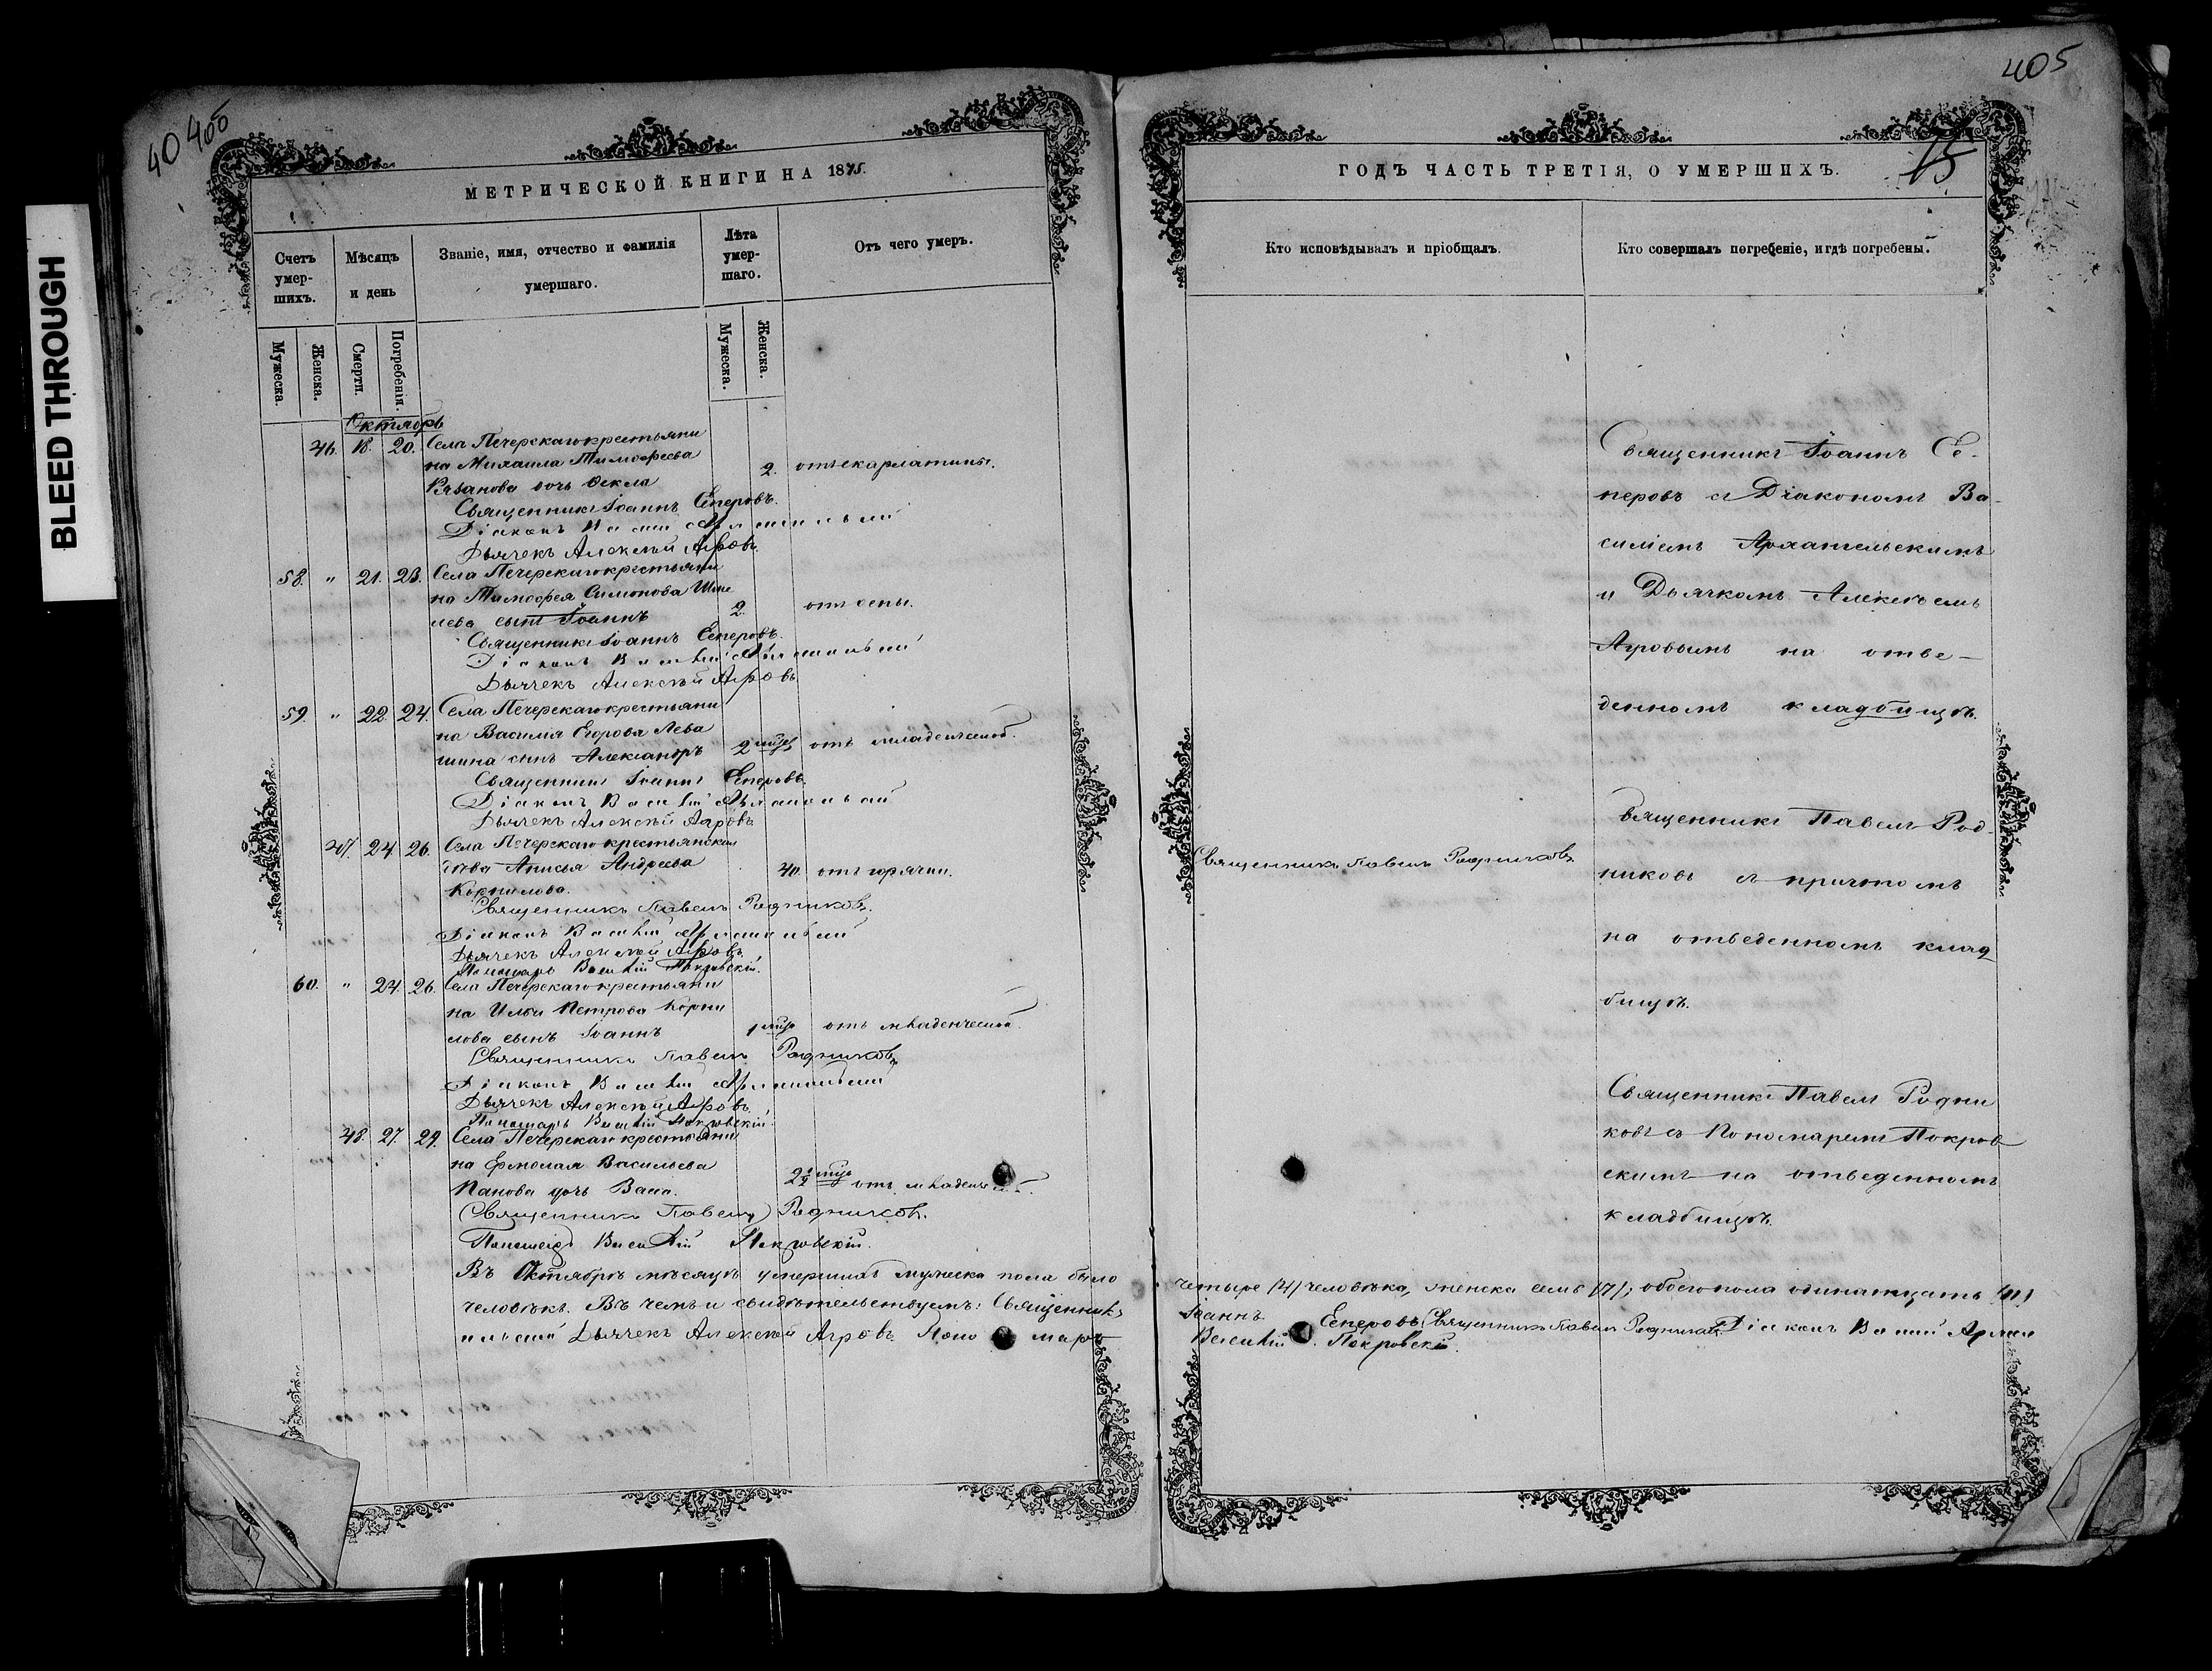 BLEED THROUGH
40 400
МЕТРИЧЕСКОЙ КНИГИ НА 1875.
Счетъ умер-шихъ.
Мѣсяцъ и день
Званіе, имя, отчество и фамилія умершаго.
Лѣта умер-шаго.
Отъ чего умеръ.
Мужеска.
Женска.
Смерти.
Погребенія.
Мужеска.
Женска.
Октябрь
46. 18. 20. Села Печерскаго крестьяни
на Михаила Тимофеева
Рязанова дочь Фекла 2. отъ скарлатины.
Священникъ Іоаннъ Сеперовъ.
Діаконъ
Дьячекъ Алексѣй Агровъ.
58. " 21. 23. Села Печерскаго крестьяни
на Тимофея Симонова Шме
лева сынъ Іоаннъ 2. отъ оспы.
Священникъ Іоаннъ Сеперовъ.
Діаконъ
Дьячекъ Алексѣй Агровъ
59. " 22 24. Села Печерскаго крестьяни
на Василия Егорова Лева
шина сынъ Александръ 2 мцев отъ младенческой.
Священникъ Іоаннъ Сеперовъ
Діаконъ
Дьячекъ Алексѣй Агровъ
47. 24 26. Села Печерскаго крестьянская
дѣва Анисья Андреева 40. отъ горячки.
Корнилова.
Священникъ Павелъ Родниковъ.
Діаконъ
Дьячекъ Алексѣй Агровъ
Пономарь Василій Покровскій.
60. " 24 26. Села Печерскаго крестьяни
на Ильи Петрова Корни
лова сынъ Іоаннъ 1 мца отъ младенческой.
Священникъ Павелъ Родниковъ
Діаконъ
Дьячекъ Алексѣй Агровъ
Пономарь Василій Покровскій.
48. 27. 29. Села Печерскаго крестьяни
на Ермолая Васильева
Панова дочь 2½ мца отъ младенческ.
Священникъ Павелъ Родниковъ.
Пономарь Василій Покровскій.
Въ Октябрѣ мѣсяцѣ умершихъ мужеска пола было
человѣкъ. Въ чемъ и свидѣтельствуемъ: Священникъ
Дьячекъ Алексѣй Агровъ Поно марь
405
15
ГОДЪ ЧАСТЬ ТРЕТІЯ, О УМЕРШИХЪ.
Кто исповѣдывалъ и пріобщалъ.
Кто совершалъ погребеніе, и гдѣ погребены.
Священникъ Іоаннъ Се-
перовъ съ Діакономъ Ва-
силіемъ Архангельскимъ
и Дьячкомъ Алексѣемъ
Агровымъ на отве-
денномъ кладбищѣ.
Священникъ Павелъ Родниковъ
Священникъ Павелъ Род-
никовъ съ причтомъ
на отведенномъ клад
бищѣ.
Священникъ Павелъ Родни
ковъ съ Пономаремъ Покров
скимъ на отведенномъ
кладбищѣ.
четыре /4/ человѣка, женска семь /7/; обоего пола одинатцать /11/
Іоаннъ Сеперовъ, Священникъ Павелъ Родниковъ Діаконъ
Василій Покровскій.